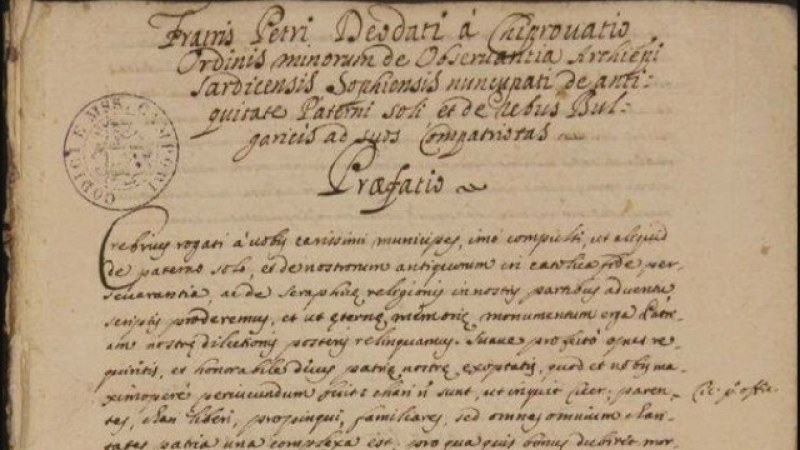 Fratris Petri Deodati á Chiprovatio
Ordinis minorum de Observantia Archiepi
Sardicensis Sophiensis nuncupati de anti-
quitate Paterni soli et de rebus Bul-
garicis ad suos Compatriotas
CODICI E MSS. CAMPORI
Præfatio
Crebrius rogati á vobis carissimi municipes, imó compulsi, ut aliquid
de paterno solo, et de nostrorum antiquorum in catolica fide per-
severantia, ac de seraphicę religionis in nostris partibus adventu
scriptis proderemus, et ut ęternę memorię monumentum erga Patri-
am nostrę dilectionis posteris relinquamus. Suave profectó opus re-
quiritis, et honorabile decus patrię nostrę exoptatis, quod et nobis ma-
ximoperé periucundum fuit: chari n̄ sunt, ut inquit Cicer. paren-
Cic. pº offic.
tes, chari liberi, propinqui, familiares, sed omnes omnium chari-
tates patria una complexa est, pro qua quis bonus dubitet mor-